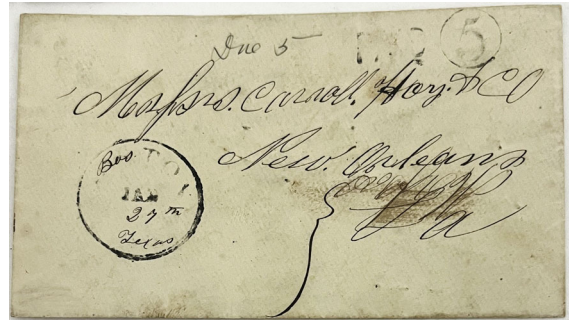 Due 5
5
Messrs. Carroll, Hoy. & CO
New. Orleans
La
Bos.
TON
JAN
27th
Texas